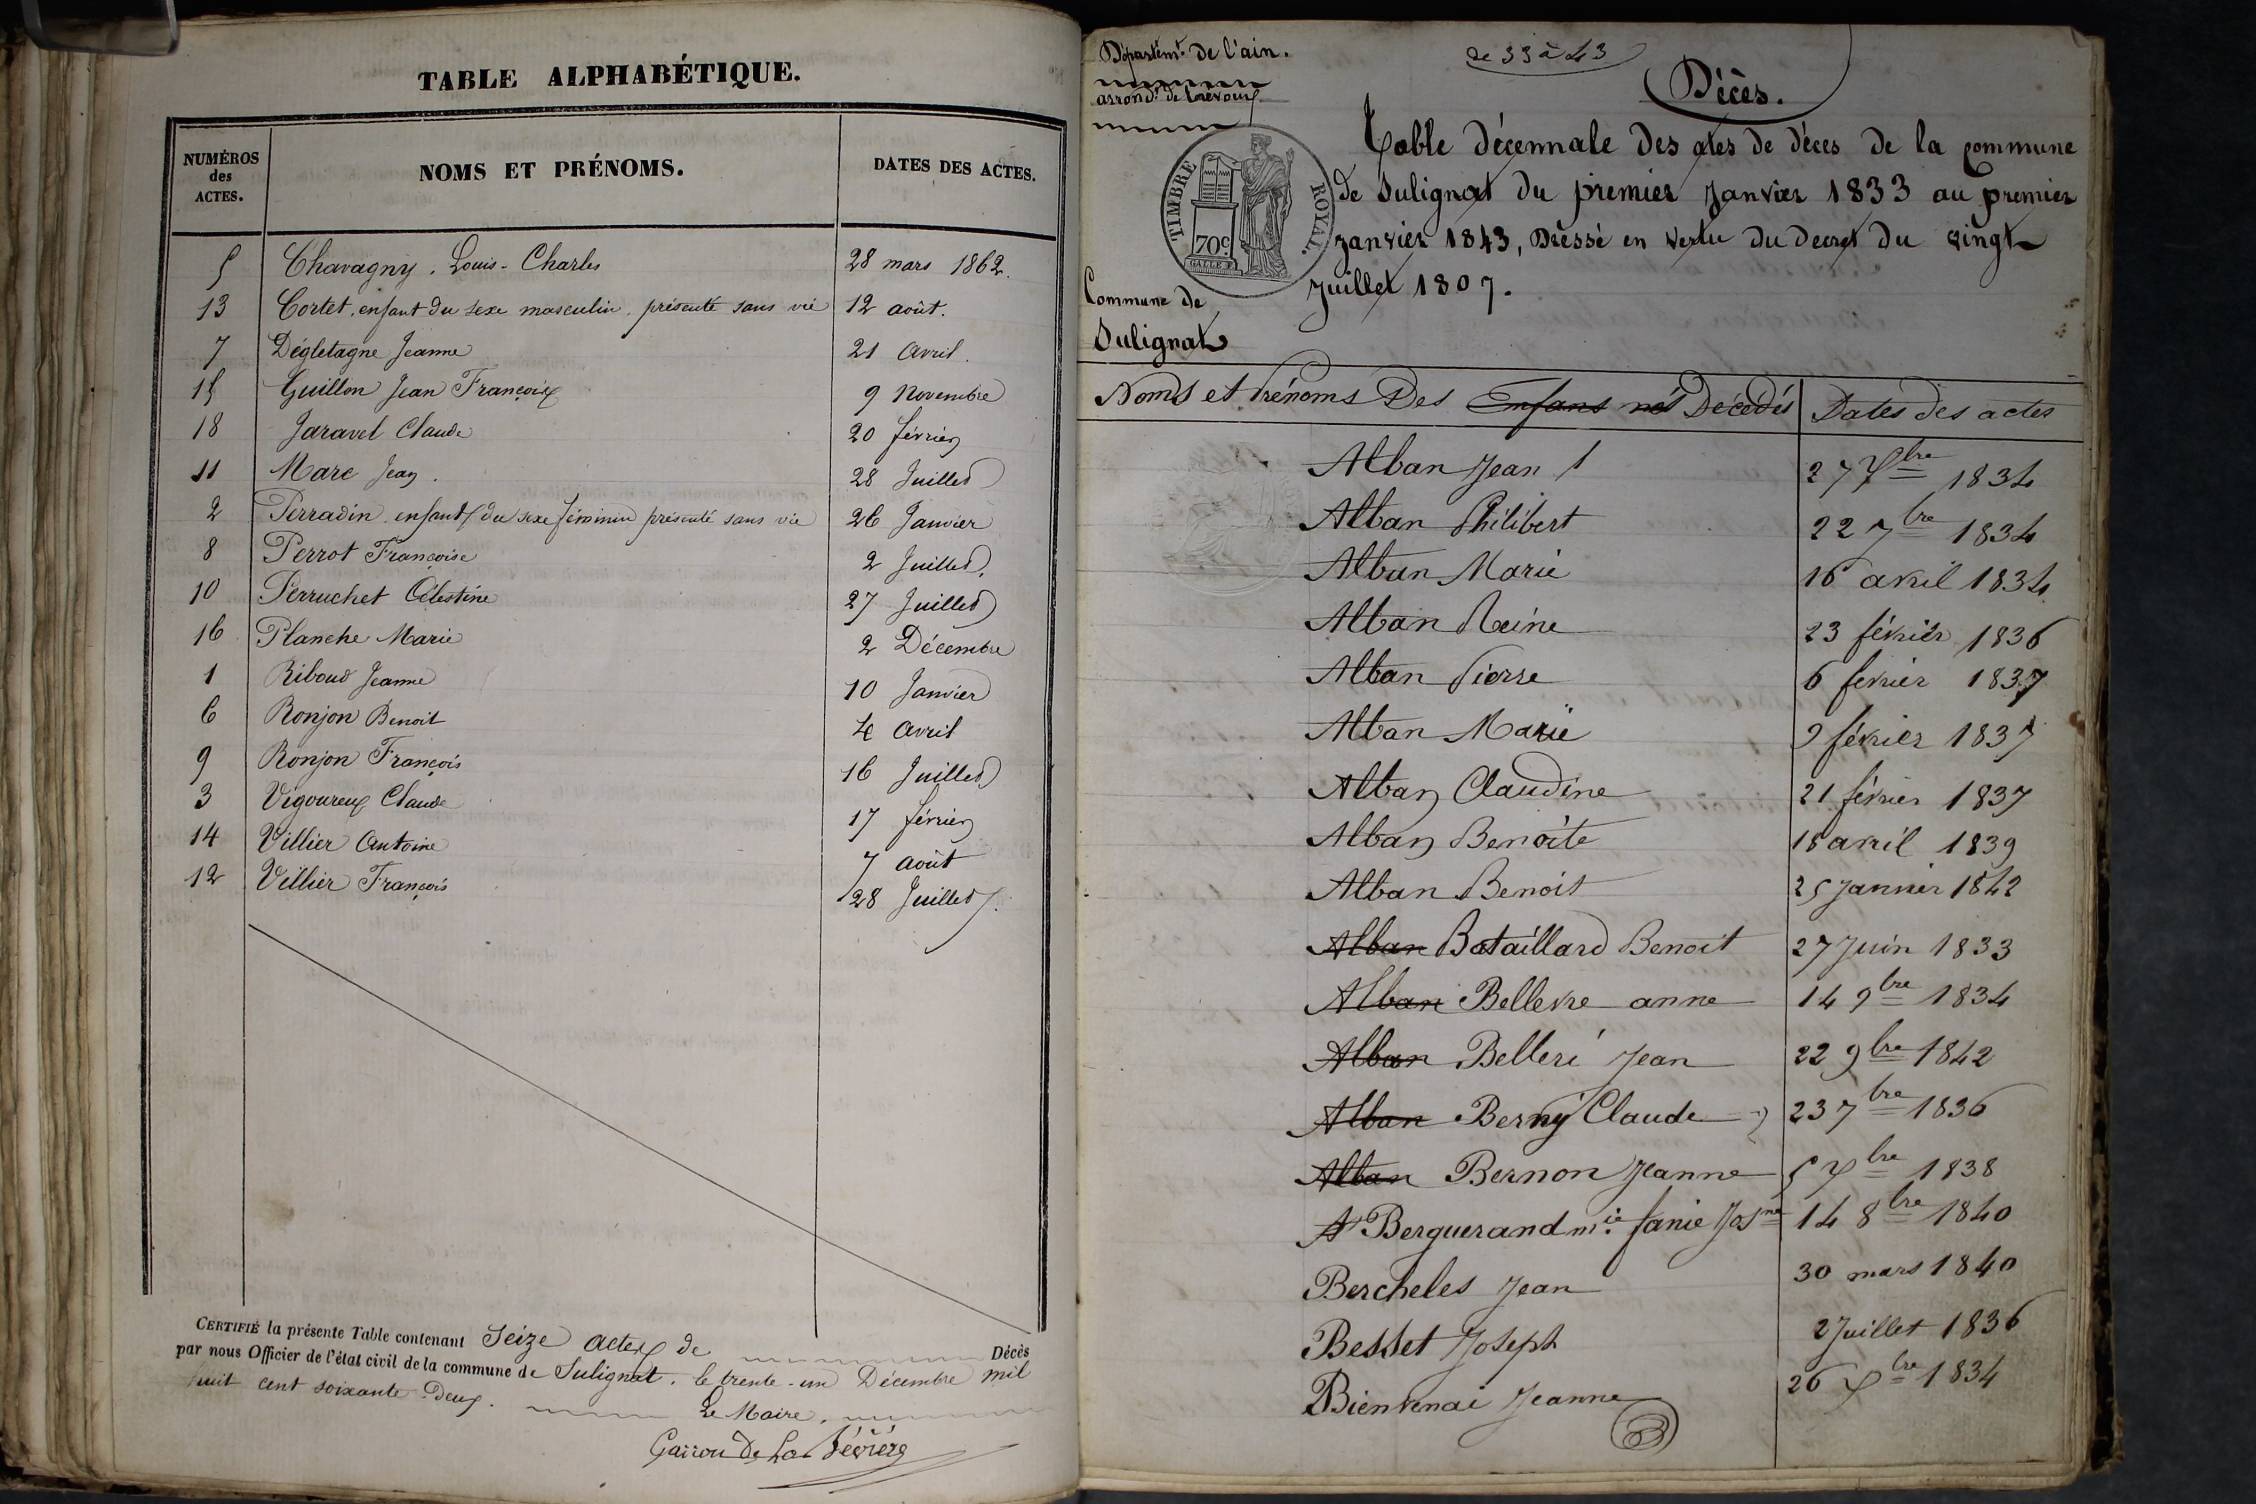 TABLE ALPHABÉTIQUE.
NUMÉROS des ACTES. NOMS ET PRÉNOMS. DATES DES ACTES.
5 Chavagny, Louis-Charles 28 mars 1862.
13 Cortet, enfant du sexe masculin, présenté sans vie 12 août.
7 Dégletagne Jeanne 21 Avril.
15 Guillon Jean François 9 Novembre
18 Jaravel Claude 20 février
11 Marc Jean. 28 Juillet
2 Perradin enfant du sexe féminin présenté sans vie 26 Janvier
8 Perrot Françoise 2 Juillet.
10 Perruchet Célestine 27 Juillet
16 Planche Marie 2 Décembre
1 Riboud Jeanne 10 Janvier
6 Ronjon Benoit 4 Avril
9 Ronjon François 16 Juillet
3 Vigoureux Claude 17 février
14 Villier Antoine 7 août
12 Villier François 28 Juillet.
CERTIFIÉ la présente Table contenant Seize actes de Décès
par nous Officier de l'état civil de la commune de Sulignat, le trente-un Décembre mil
huit cent soixante-Deux. Le Maire,
Garron De La Bévière
Départemt. de l'ain.
arrondt. de trévoux
de 33 à 43
Décès.
TIMBRE ROYAL.
70c.
Table décennale des actes de déces de la commune
de Sulignat du premier Janvier 1833 au premier
janvier 1843, Dressé en vertu du decret du vingt
Juillet 1807.
Commune de
Sulignat
Noms et Prénoms Des Enfans nés Décédés Dates des actes
Alban Jean 27 Xbre 1834
Alban Philibert 22 7bre 1834
Alban Marie 16 avril 1834
Alban Reine 23 février 1836
Alban Pierre 6 fevrier 1837
Alban Marie 9 février 1837
Alban Claudine 21 février 1837
Alban Benoite 18 avril 1839
Alban Benoit 25 Janvier 1842
Alban Bataillard Benoit 27 Juin 1833
Alban Bellevre anne 14 9bre 1834
Alban Belleri Jean 22 9bre 1842
Alban Berny Claude 23 7bre 1836
Alban Bernon Jeanne 5 Xbre 1838
A Berguerand mie fanie Josne 14 8bre 1840
Bercheles Jean 30 mars 1840
Besset Joseph 2 Juillet 1836
Bienvenai Jeanne 26 Xbre 1834